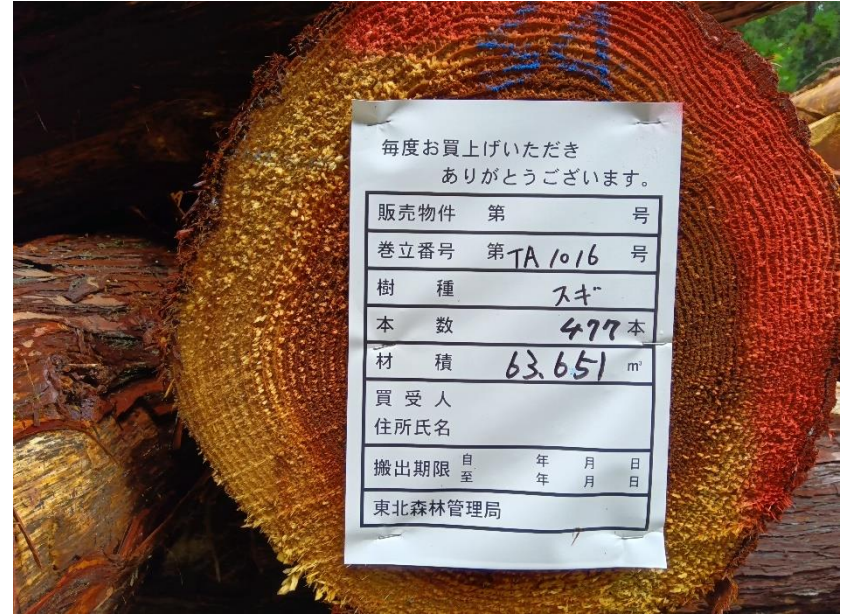 毎度お買上げいただき
ありがとうございます。
販売物件 第 号
巻立番号 第TA1016 号
樹 種 スギ
本 数 477本
材 積 63.651 m³
買 受 人
住所氏名
搬出期限 自 年 月 日
至 年 月 日
東北森林管理局